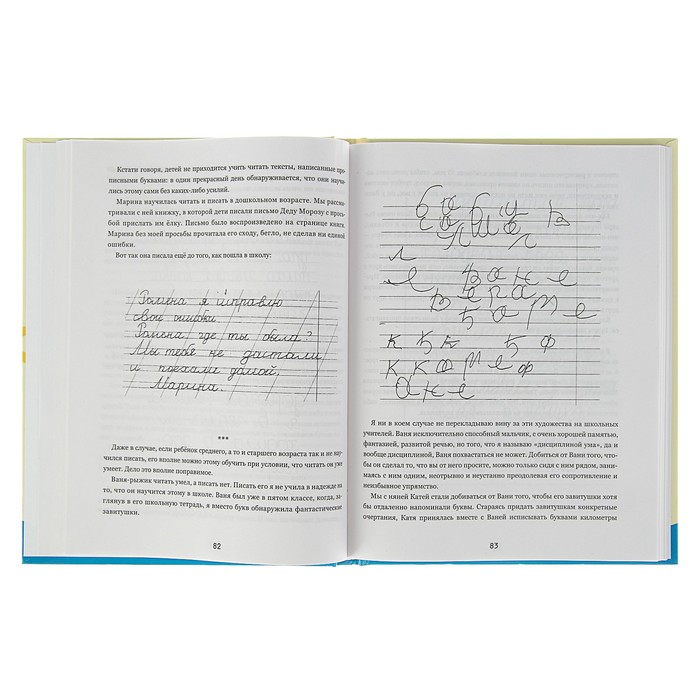 Кстати говоря, детей не приходится учить читать тексты, написанные про-
писными буквами: в один прекрасный день обнаруживается, что они научи-
лись этому сами без каких-либо усилий.
Марина научилась читать и писать в дошкольном возрасте. Мы рассма-
тривали с ней книжку, в которой дети писали письмо Деду Морозу с прось-
бой прислать им ёлку. Письмо было воспроизведено на странице книги.
Марина без моей просьбы прочитала его сходу, бегло, не сделав ни единой
ошибки.
Вот так она писала ещё до того, как пошла в школу:
я
свои ошибки
где ты была?
Мы тебе не достали
и поехали домой.
Марина.
***
Даже в случае, если ребёнок среднего, а то и старшего возраста так и не нау-
чился писать, его вполне можно этому обучить при условии, что читать он уже
умеет. Дело это вполне поправимое.
Ваня-рыжик читать умел, а писать нет. Писать его я не учила в надежде на
то, что он научится этому в школе. Ваня был уже в пятом классе, когда, за-
глянув в его школьную тетрадь, я вместо букв обнаружила фантастические
завитушки.
82
Я ни в коем случае не перекладываю вину за эти художества на школьных
учителей. Ваня исключительно способный мальчик, с очень хорошей памятью,
фантазией, развитой речью, но того, что я называю «дисциплиной ума», да и
вообще дисциплиной, Ваня похвастаться не может. Добиться от Вани того, что-
бы он сделал то, что бы от него просите, можно только сидя с ним рядом, зани-
маясь с ним одним, неотрывно и неустанно преодолевая его сопротивление и
неизбывное упрямство.
Мы с няней Катей стали добиваться от Вани того, чтобы его завитушки хотя
бы отдаленно напоминали буквы. Стараясь придать завитушкам конкретные
очертания, Катя принялась вместе с Ваней исписывать буквами километры
83